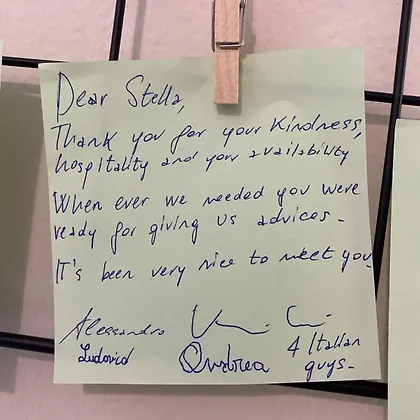 Dear Stella,
Thank you for your Kindness,
hospitality and your availability
When ever we needed you were
ready for giving us advices -
IT's been very nice to meet you.
Alessandro
Ludovico
Andrea
4 Italian
guys -